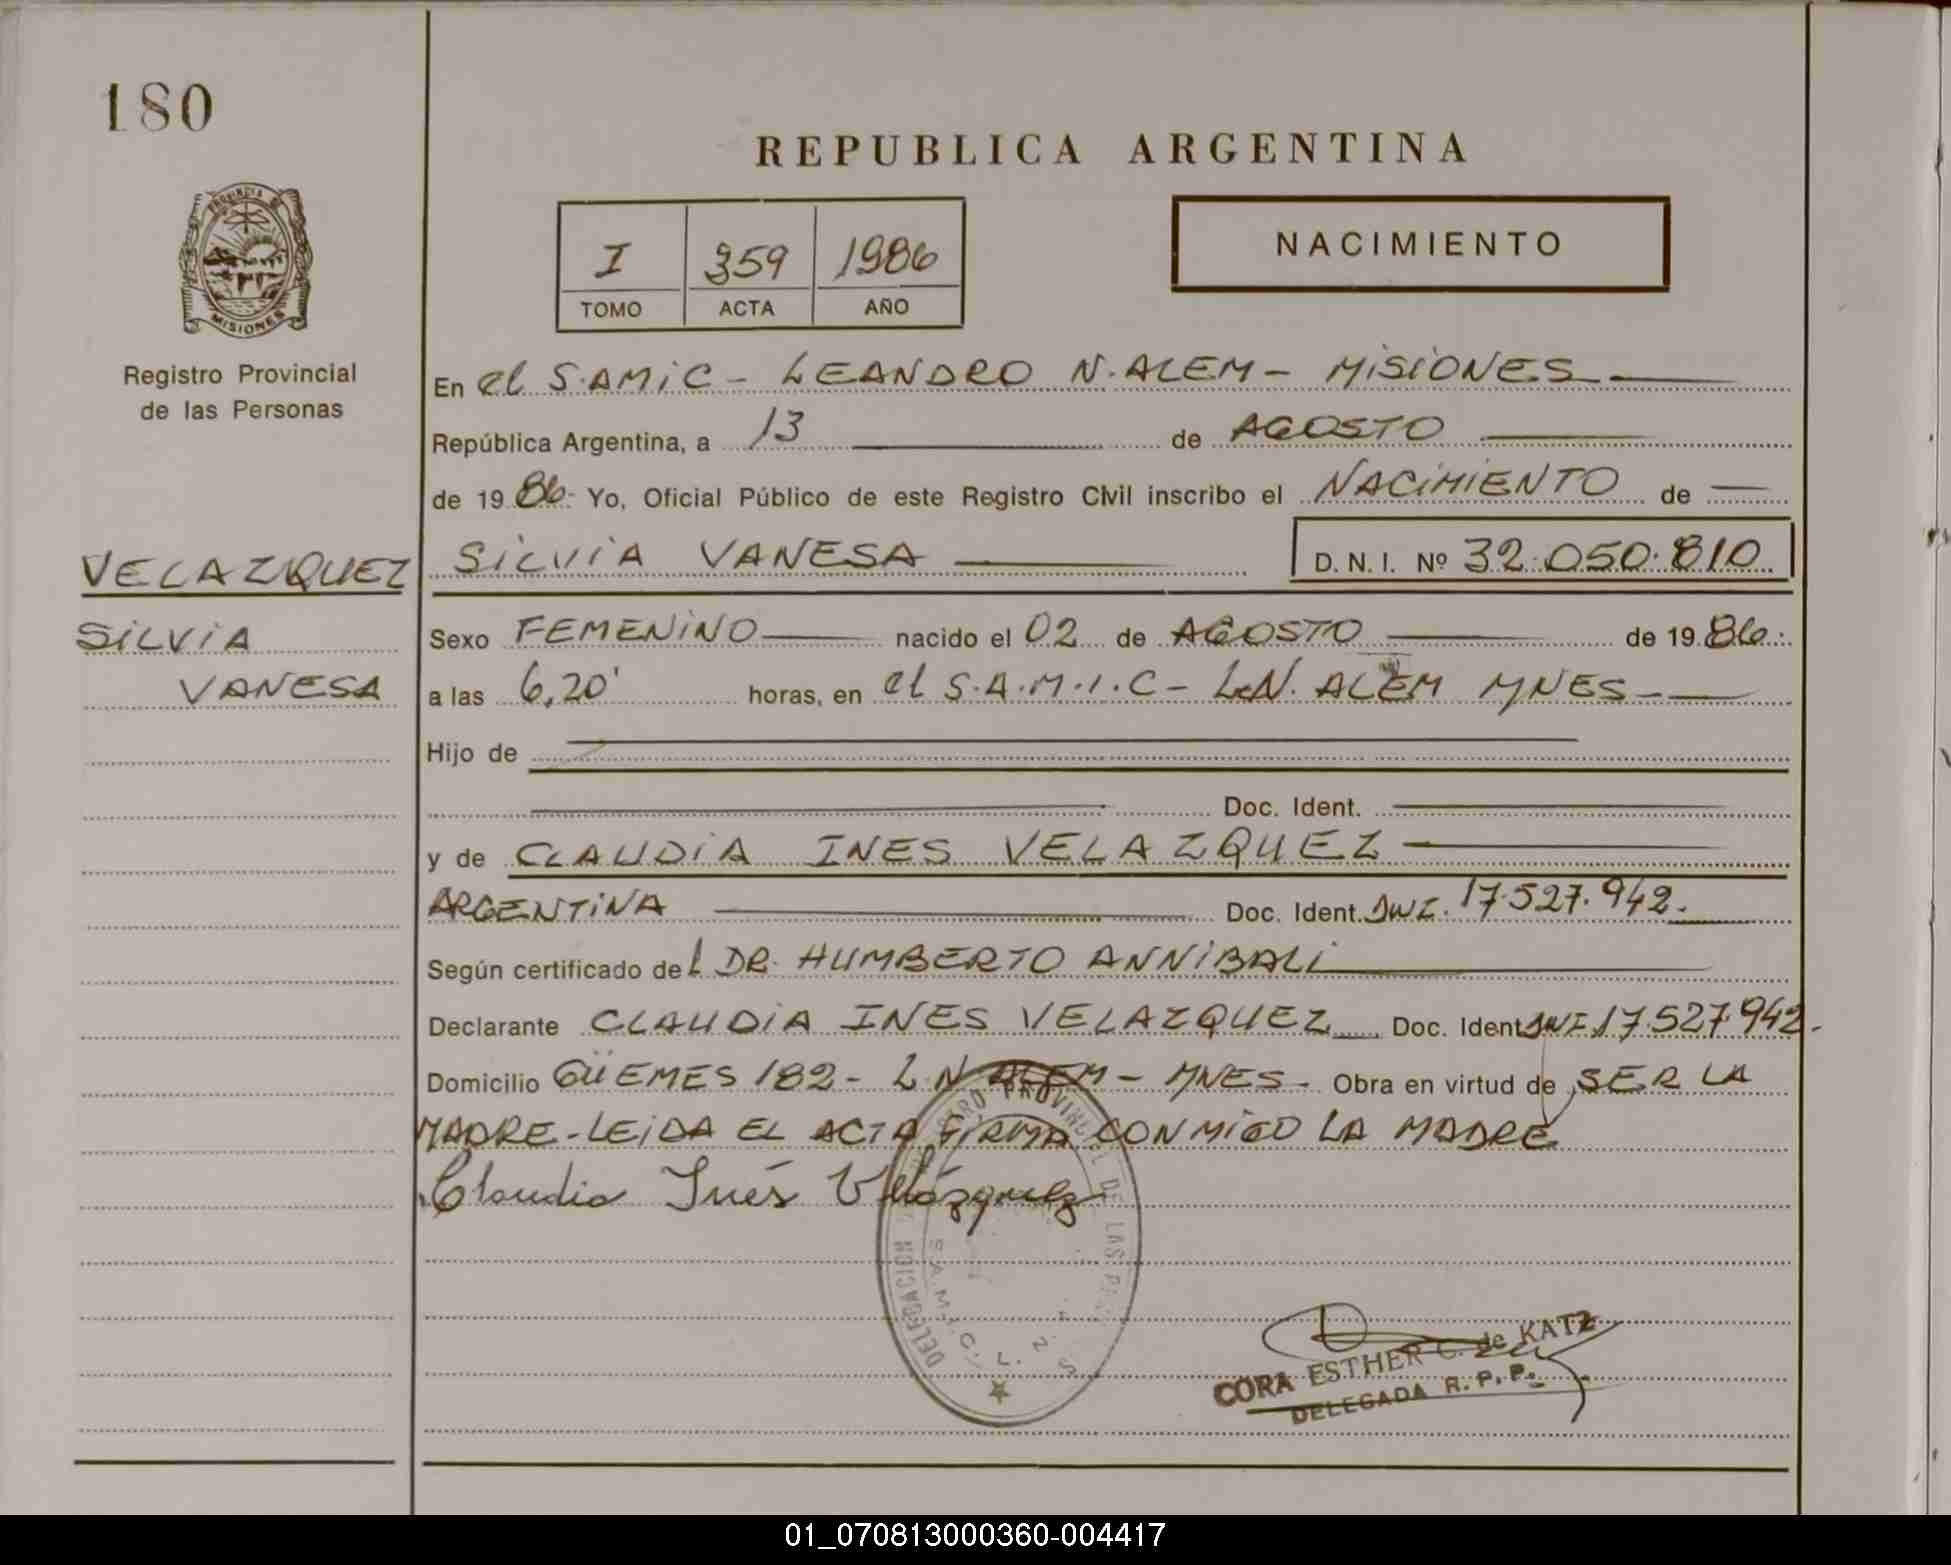 180
REPUBLICA ARGENTINA
I 359 1986
TOMO ACTA AÑO
NACIMIENTO
PROVINCIA DE
MISIONES
Registro Provincial
de las Personas
En el S.AMIC - LEANDRO N. ALEM - MISIONES
República Argentina, a 13 de AGOSTO
de 1986 Yo, Oficial Público de este Registro Civil inscribo el NACIMIENTO de
VELAZQUEZ
SILVIA
VANESA
SILVIA VANESA D. N. I. Nº 32.050.810
Sexo FEMENINO nacido el 02 de AGOSTO de 1986
a las 6,20' horas, en el S.A.M.I.C - L.N. ALEM MNES -
Hijo de
Doc. Ident.
y de CLAUDIA INES VELAZQUEZ
ARGENTINA Doc. Ident. DNI. 17.527.942.
Según certificado del DR. HUMBERTO ANNIBALI
Declarante CLAUDIA INES VELAZQUEZ Doc. Ident DNI 17.527.942.
Domicilio GÜEMES 182 - L.N ALEM - MNES - Obra en virtud de SER LA
MADRE - LEIDA EL ACTA FIRMA CONMIGO LA MADRE
Claudia Inés Velázquez
DELEGACION PROVINCIAL DE LAS
S.A.M.I.C. L.
CORA ESTHER C. de KATZ
DELEGADA R. P. P.
01_070813000360-004417